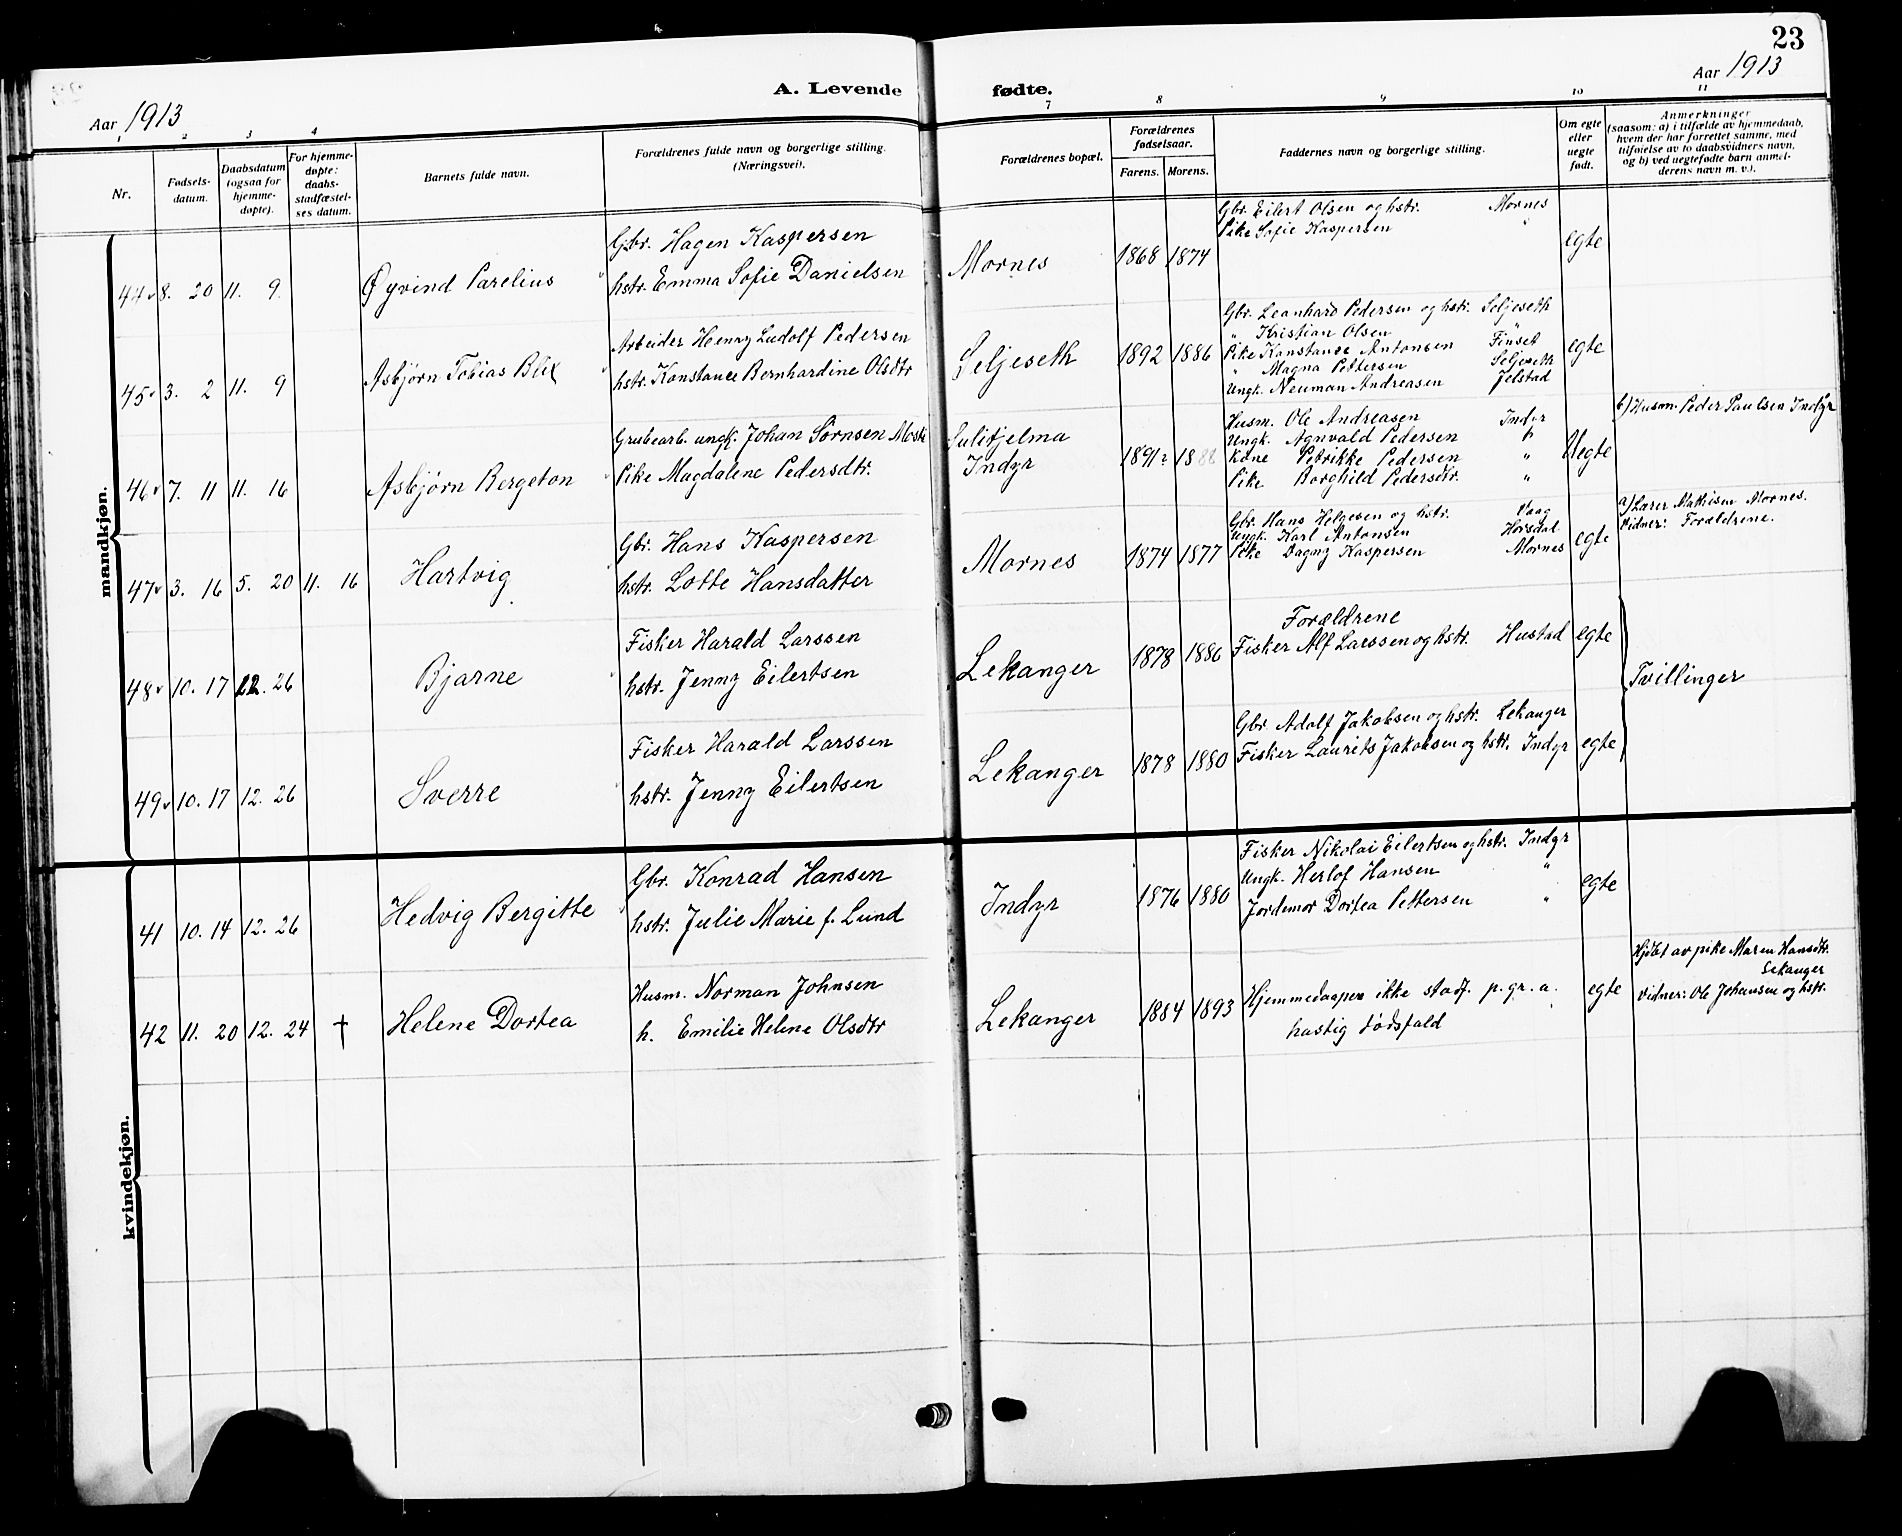 23
Aar 1913
A. Levende fødte.
Aar 1913
1 2 3 4 7 8 9 10 11
Nr.
Fødsels-
datum.
Daabsdatum
(ogsaa for
hjemme-
døpte).
For hjemme-
døpte:
daabs-
stadfæstel-
ses datum.
Barnets fulde navn.
Forældrenes fulde navn og borgerlige stilling.
(Næringsvei).
Forældrenes bopæl.
Forældrenes
fødselsaar.
Farens. Morens.
Faddernes navn og borgerlige stilling.
Om egte
eller
uegte
født.
Anmerkninger
(saasom: a) i tilfælde av hjemmedaab,
hvem der har forrettet samme, med
tilføielse av to daabsvidners navn,
og b) ved uegtefødte barn anmel-
derens navn m. v.).
mandkjøn.
44 8. 20 11. 9.
Øyvind Parelius
Gbr. Hagen Kaspersen
hstr. Emma Sofie Danielsen
Mornes
1868 1874
Gbr. Eilert Olsen og hstr. Mornes
Pike Sofie Kaspersen "
egte
45 3. 2 11. 9
Asbjørn Tobias Blix
Arbeider Henny Ludolf Pedersen
hstr. Konstance Bernhardine Olsdtr
Seljeseth
1892 1886
Gbr. Leonhard Pedersen og hstr. Seljeseth
" Kristian Olsen "
Pike Konstance Antonsen Finset
" Magna Pettersen Seljeseth
Ungk. Neuman Andreasen Jelstad
egte
46 7. 11 11. 16
Asbjørn Bergeton
Grubearb. ungk. Johan Sørnsen
Pike Magdalene Pedersdtr.
Sulitjelma
Indyr
1891? 1888
Husm. Ole Andreasen Indyr
Ungk. Agnvald Pedersen "
Kone Petrikke Pedersen "
Pike Borghild Pedersdtr. "
Uegte
b) Husm. Peder Paulsen Indyr
47 3. 16 5. 20 11. 16
Hartvig
Gbr. Hans Kaspersen
hstr. Lotte Hansdatter
Mornes
1874 1877
Gbr. Hans Helgesen og hstr. Vaag
Ungk. Karl Antonsen Horsdal
Pike Dagny Kaspersen Mornes
egte
a) Lærer Mathisen Mornes.
Vidner: Forældrene.
48 10. 17 12. 26
Bjarne
Fisker Harald Larssen
hstr. Jenny Eilertsen
Lekanger
1878 1886
Forældrene
Fisker Alf Larssen og hstr. Hustad
egte
Tvillinger
49 10. 17 12. 26
Sverre
Fisker Harald Larssen
hstr. Jenny Eilertsen
Lekanger
1878 1880
Gbr. Adolf Jakobsen og hstr. Lekanger
Fisker Laurits Jakobsen og hstr. Indyr
egte
kvindekjøn.
41 10. 14 12. 26
Hedvig Bergitte
Gbr. Konrad Hansen
hstr. Julie Marie f. Lund
Indyr
1876 1880
Fisker Nikolai Eilertsen og hstr. Indyr
Ungk. Herlof Hansen "
Jordemor Dortea Pettersen "
egte
42 11. 20 12. 24 †
Helene Dortea
Husm. Norman Johnsen
h. Emilie Helene Olsdtr
Lekanger
1884 1893
Hjemmedaapen ikke stadf. p. gr. a.
hastig dødsfald
egte
Hjdøt av pike Maren Hansdtr.
Lekanger
Vidner: Ole Johansen og hstr.